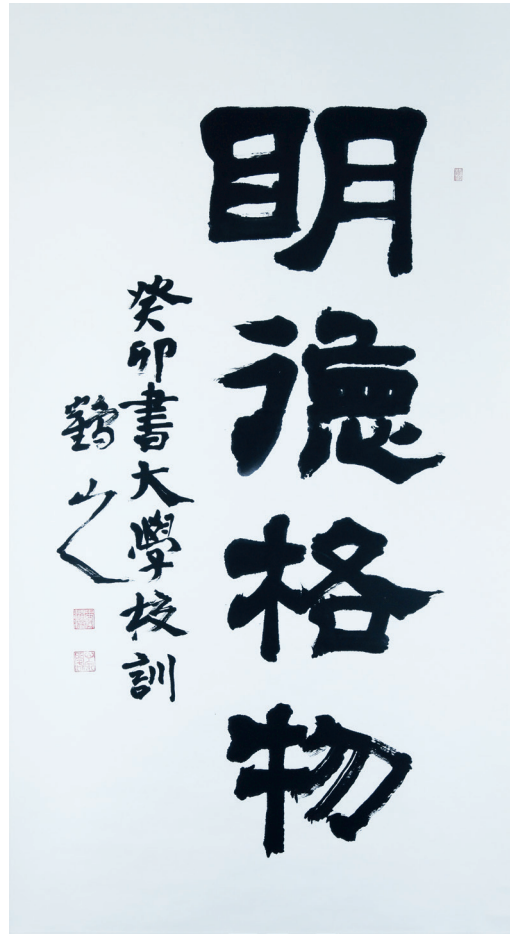 明德格物
癸卯書大學校訓
鶴山人